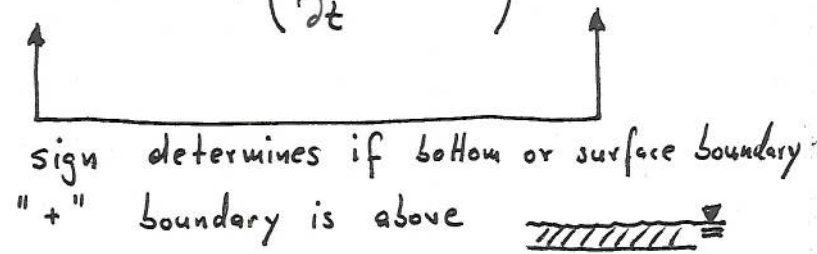 ( ∂t )
sign determines if bottom or surface boundary
"+" boundary is above